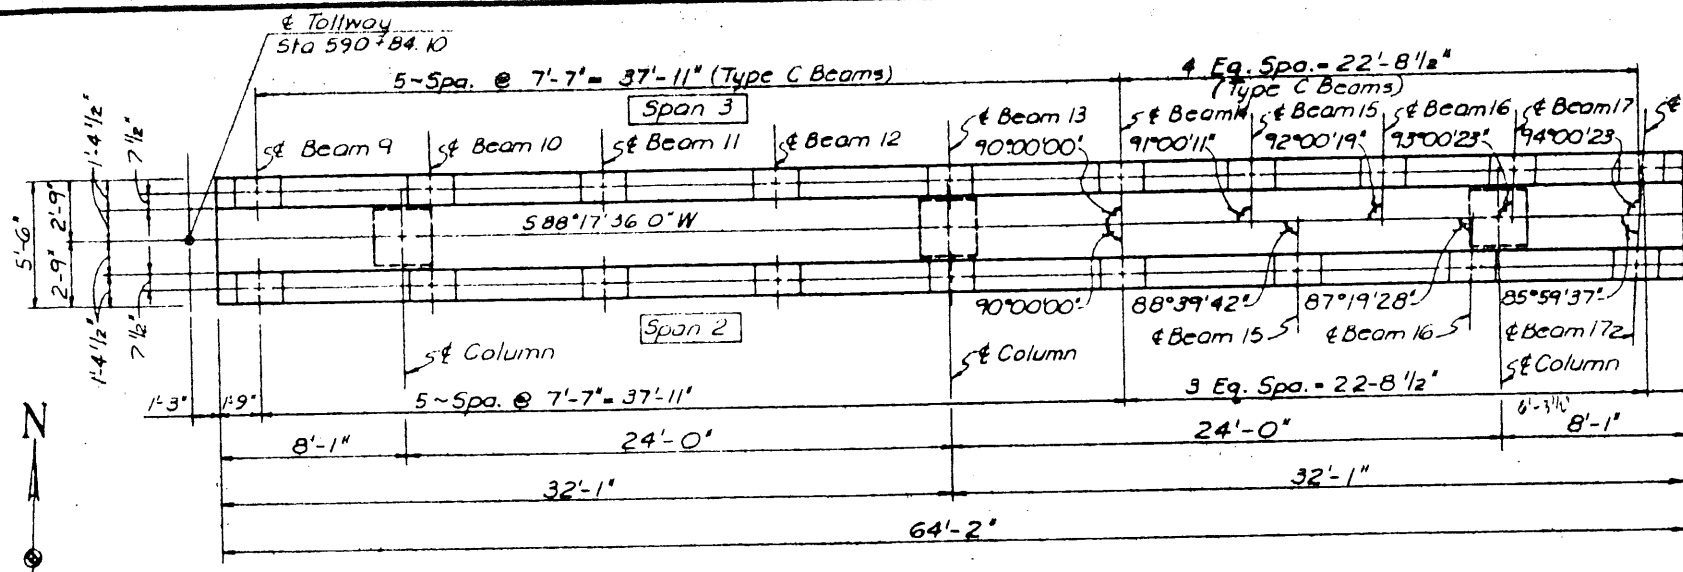 ₵ Tollway
Sta 590+84.10
5~Spa. @ 7'-7"= 37'-11" (Type C Beams)
4 Eq. Spa.= 22'-8 1/2"
(Type C Beams)
Span 3
₵ Beam 9
₵ Beam 10
₵ Beam 11
₵ Beam 12
₵ Beam 13
90°00'00"
₵ Beam 14
91°00'11"
₵ Beam 15
92°00'19"
₵ Beam 16
93°00'23"
₵ Beam 17
94°00'23
₵
1'-4 1/2"
7 1/2"
5'-6"
2'-9"
2'-9"
1'-4 1/2"
7 1/2"
S 88°17'36.0" W
90°00'00"
88°39'42"
87°19'28"
85°59'37"
Span 2
₵ Beam 15
₵ Beam 16
₵ Beam 17
₵ Column
₵ Column
₵ Column
1'-3"
1'-9"
5~Spa. @ 7'-7"= 37'-11"
3 Eq. Spa.= 22-8 1/2"
N
8'-1"
24'-0"
24'-0"
8'-1"
32'-1"
32'-1"
64'-2"